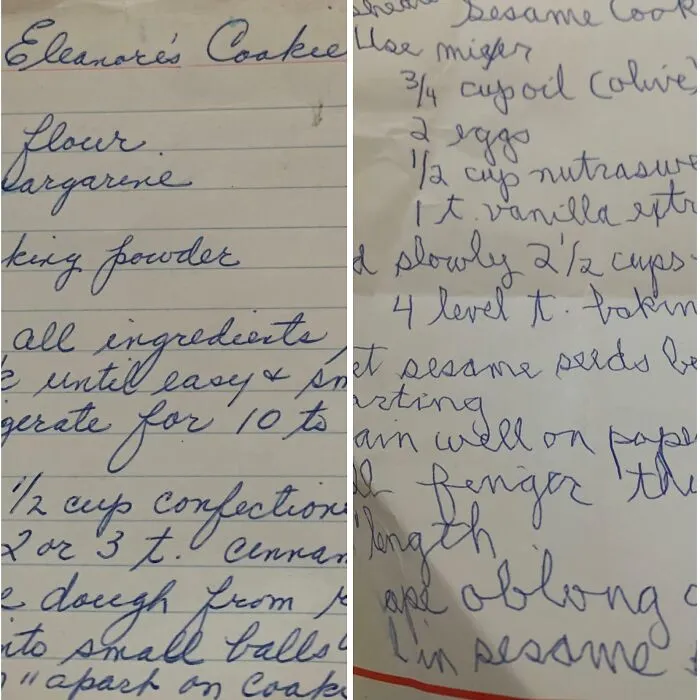 Eleanore's Cookie
flour
argarine
king powder
all ingredients,
until easy & sm
gerate for 10 to
1/2 cup confection
2 or 3 t. cinnam
e dough from r
nto small balls
" apart on cook
Sesame Cook
Use mixer
3/4 cup oil (olive)
2 eggs
1/2 cup nutraswe
1 t. vanilla extr
d slowly 2 1/2 cups
4 level t. bakin
et sesame seeds be
arting
ain well on pape
finger thi
length
ape oblong
in sesame